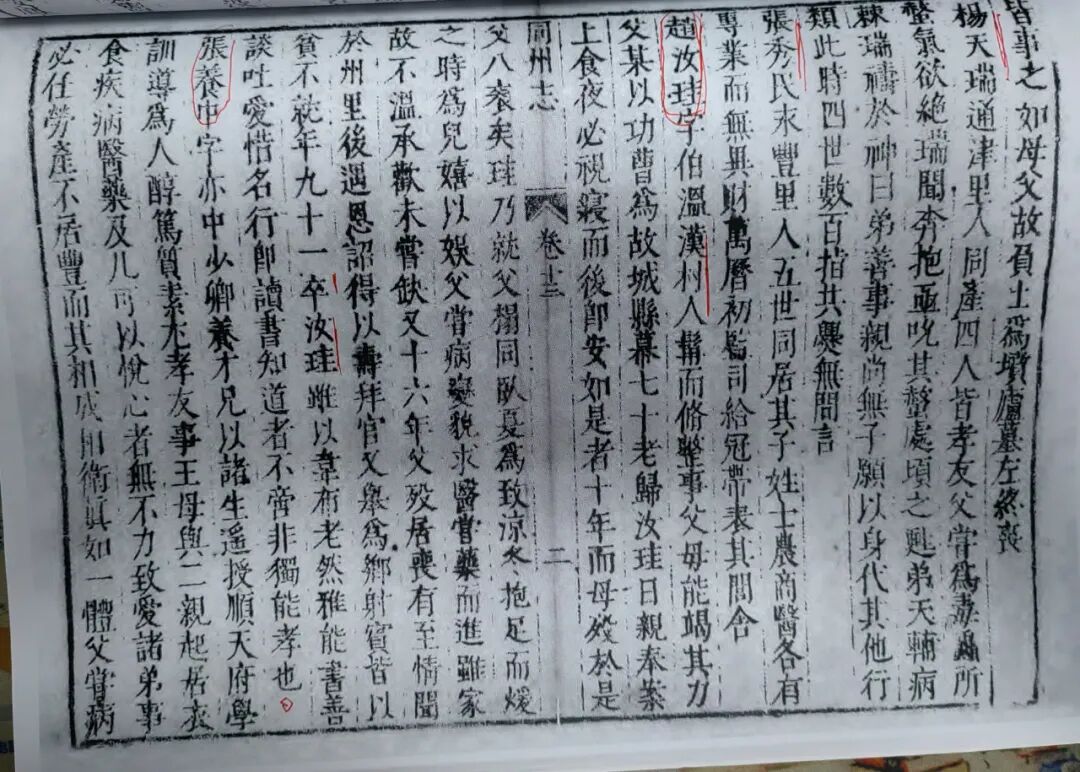 皆事之如母父故負土爲墳廬墓左終喪
楊天瑞通津里人同產四人皆孝友父嘗爲毒蟲所
螫氣欲絶瑞聞奔抱亟吮其螫處頃之甦弟天輔病
棘瑞禱於神曰弟善事親尚無子願以身代其他行
類此時四世數百指共爨無間言
張秀民永豐里人五世同居其子姓士農商醫各有
專業而無異財萬曆初監司給冠帶表其閭舍
趙汝珪字伯溫漢村人髯而脩整事父母能竭其力
父某以功曹爲故城縣幕七十老歸汝珪日親奉菜
上食夜必視寢而後卽安如是者十年而母歿於是
同州志 卷十三 二
父八袠矣珪乃就父榻同臥夏爲致凉冬抱足而煖
之時爲兒嬉以娛父嘗病變貌求醫嘗藥而進雖家
故不溫承歡未嘗缺又十六年父歿居喪有至情聞
於州里後遇恩詔得以壽拜官又舉爲鄉射賓皆以
貧不就年九十一卒汝珪雖以韋布老然雅能書善
談吐愛惜名行卽讀書知道者不啻非獨能孝也
張養中字亦中少卿養才兄以諸生遥授順天府學
訓導爲人醇篤質素尤孝友事王母與二親起居衣
食疾病醫藥及凡可以悅心者無不力致愛諸弟事
必任勞產不居豐而其相成相衛眞如一體父嘗病